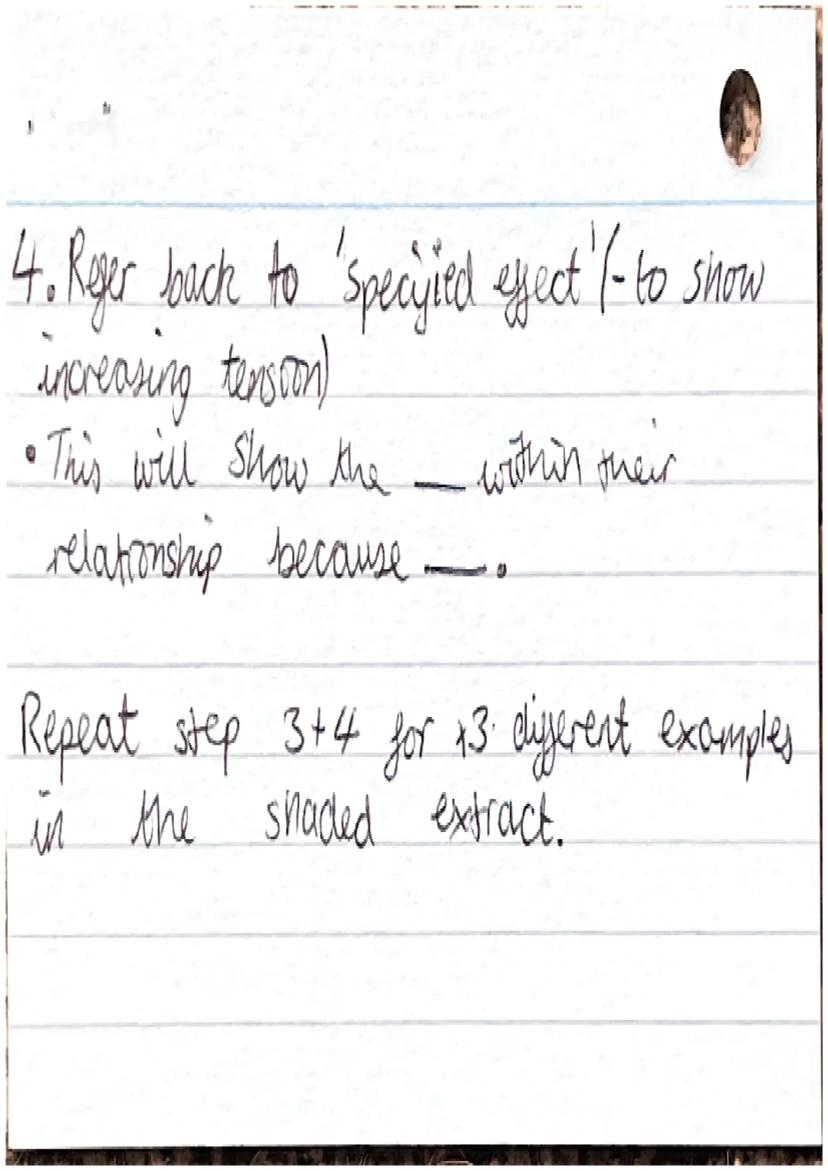 4. Refer back to 'specified effect' (- to show
increasing tension)
• This will show the __ within their
relationship because __.
Repeat step 3+4 for x3 different examples
in the shaded extract.